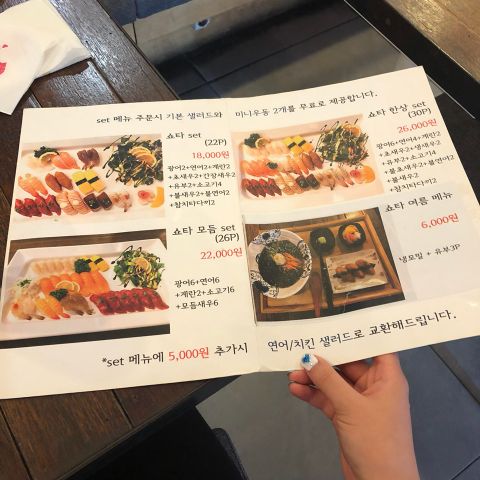 set 메뉴 주문시 기본 샐러드와 미니우동 2개를 무료로 제공합니다.
쇼타 set
(22P)
18,000원
광어2+연어2+계란2
+초새우2+간장새우2
+유부2+소고기4
+불새우2+불연어2
+참치타다끼2
쇼타 한상 set
(30P)
26,000원
광어6+연어4+계란2
+초새우2+생새우2
+유부2+소고기4
+불초새우2+불연어2
+불새우2
+참치타다끼2
쇼타 모듬 set
(26P)
22,000원
광어6+연어6
+계란2+소고기6
+모듬새우6
쇼타 여름 메뉴
6,000원
냉모밀 + 유부3P
*set 메뉴에 5,000원 추가시 연어/치킨 샐러드로 교환해드립니다.